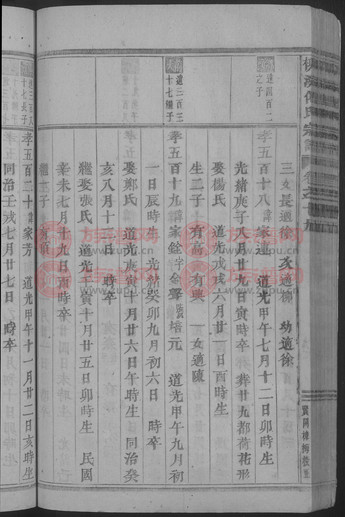 三女長適徐 次適徐 幼適徐
達四百二
之子
孝五百十八諱家達 道光甲午七月十二日卯時生
光緒庚子八月廿九日寅時卒 葬廿九都荷花形
娶楊氏 道光戊戌六月廿一日酉時生
生二子 有高 有興 一女適陳
達二百三
十七繼子
孝五百十九諱家銓字金聲號培元 道光甲午九月初
一日辰時生 光緒癸卯九月初六日 時卒
娶鄭氏 道光庚寅十月廿六日午時生 同治癸
亥八月十二日 時卒
繼娶張氏 道光 寅十月廿五日卯時生 民國
辛未七月十九日酉時卒
繼一子
達三百八
十七長子
孝五百二十諱家芳 道光甲午十一月廿二日亥時生
同治壬戌七月廿七日 時卒